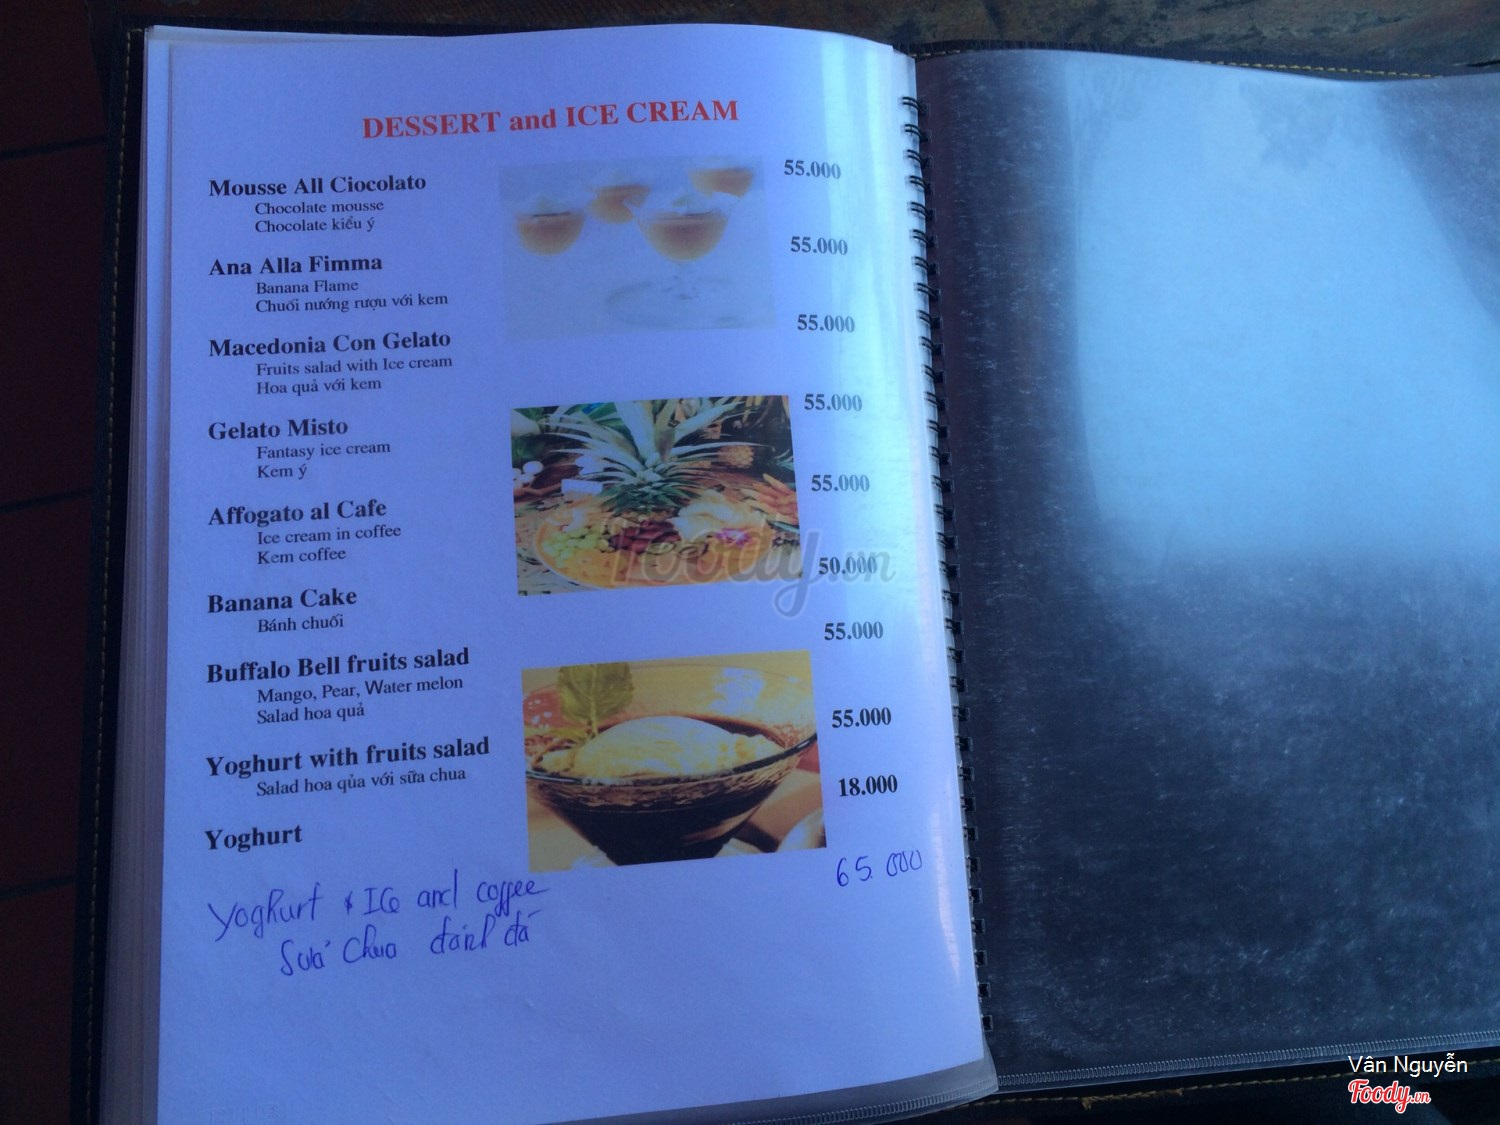 DESSERT and ICE CREAM
Mousse All Ciocolato 55.000
Chocolate mousse
Chocolate kiểu ý
Ana Alla Fimma 55.000
Banana Flame
Chuối nướng rượu với kem
Macedonia Con Gelato 55.000
Fruits salad with Ice cream
Hoa quả với kem
Gelato Misto 55.000
Fantasy ice cream
Kem ý
Affogato al Cafe 55.000
Ice cream in coffee
Kem coffee
Banana Cake 50.000
Bánh chuối
Buffalo Bell fruits salad 55.000
Mango, Pear, Water melon
Salad hoa quả
Yoghurt with fruits salad 55.000
Salad hoa qủa với sữa chua
Yoghurt 18.000
Yoghurt & ICe and coffee 65.000
Sưã Chua đánh đá
Foody.vn
Vân Nguyễn
Foody.vn